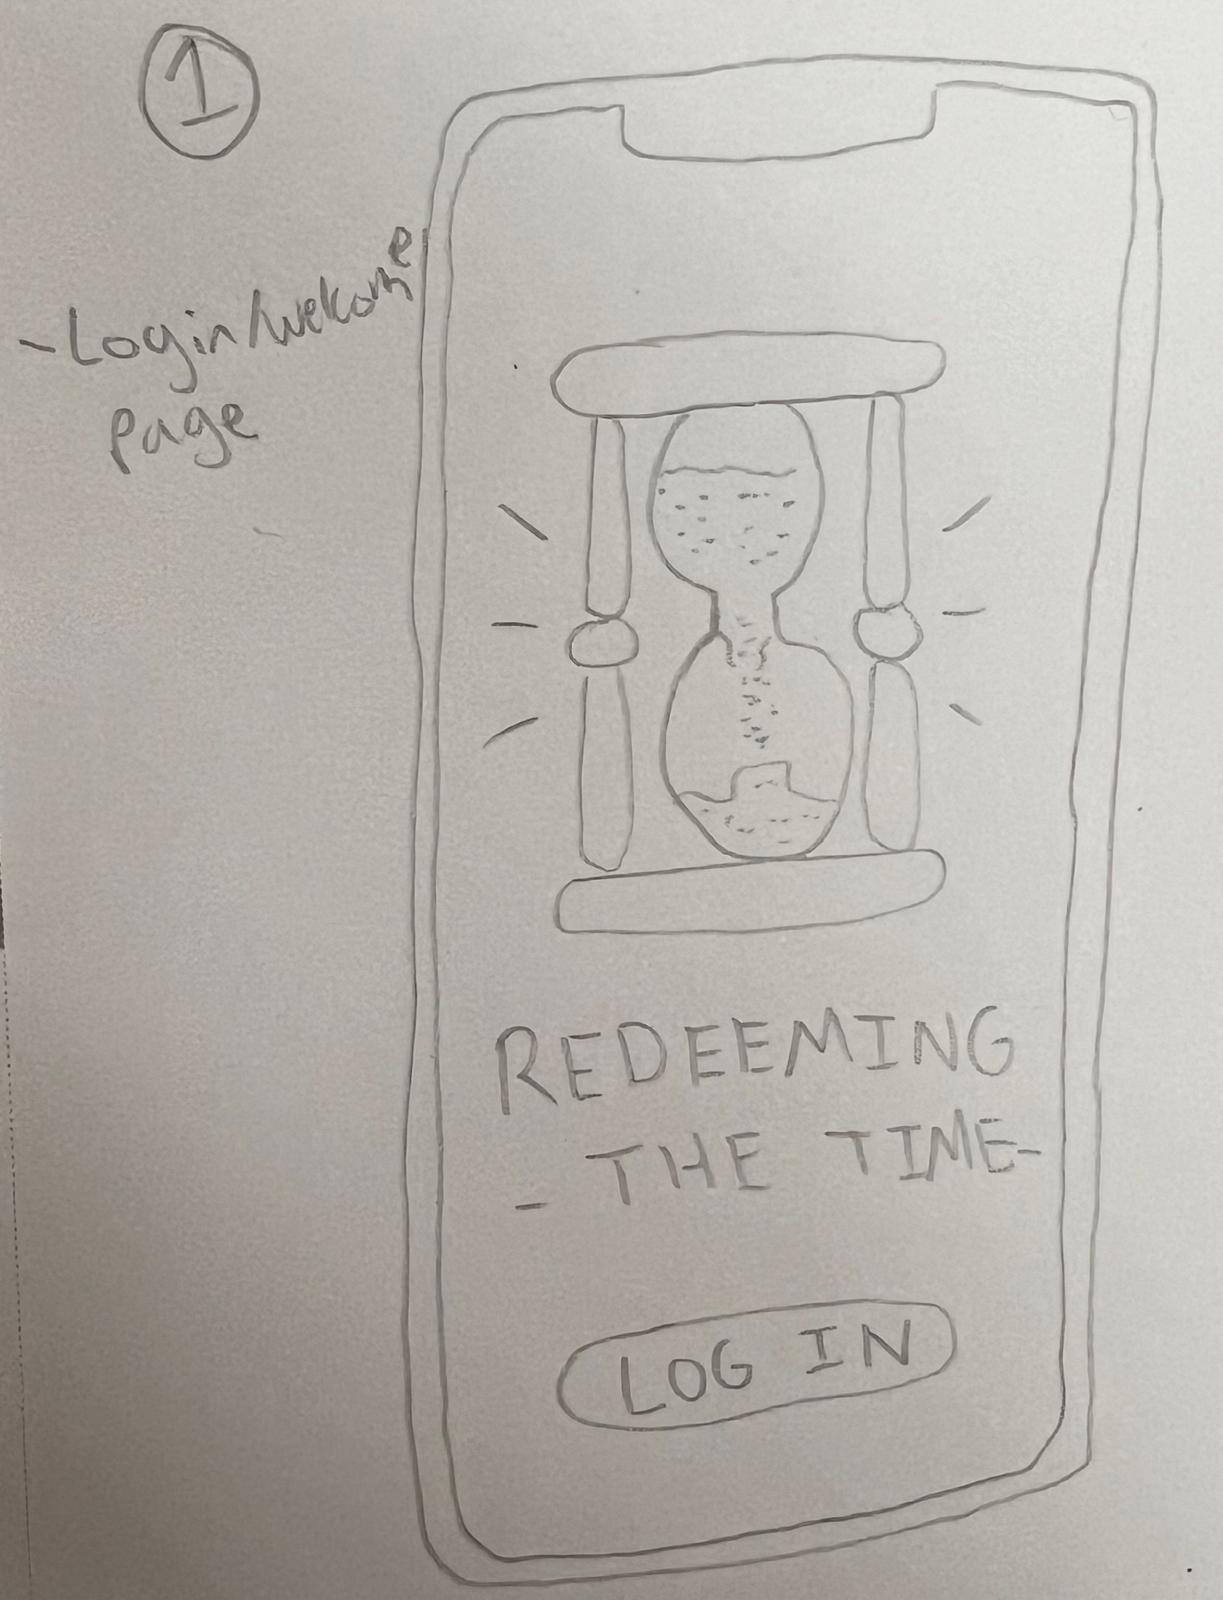 1
- Login/welcome
page
REDEEMING
- THE TIME -
LOG IN